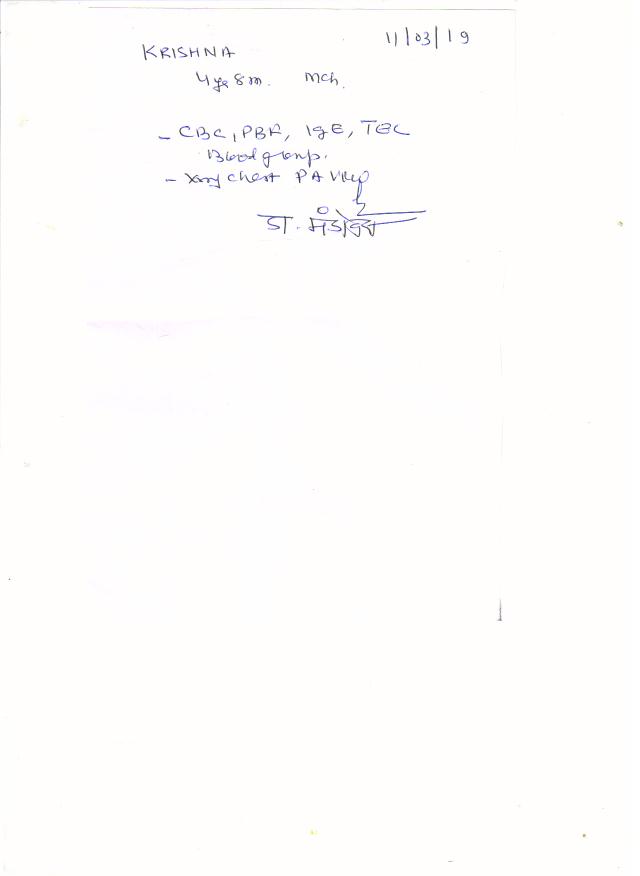 11/03/19
KRISHNA
4 yr 8 m. Mch.
- CBC, PBF, IgE, TEC
Blood group.
- Xray chest PA View
डा.